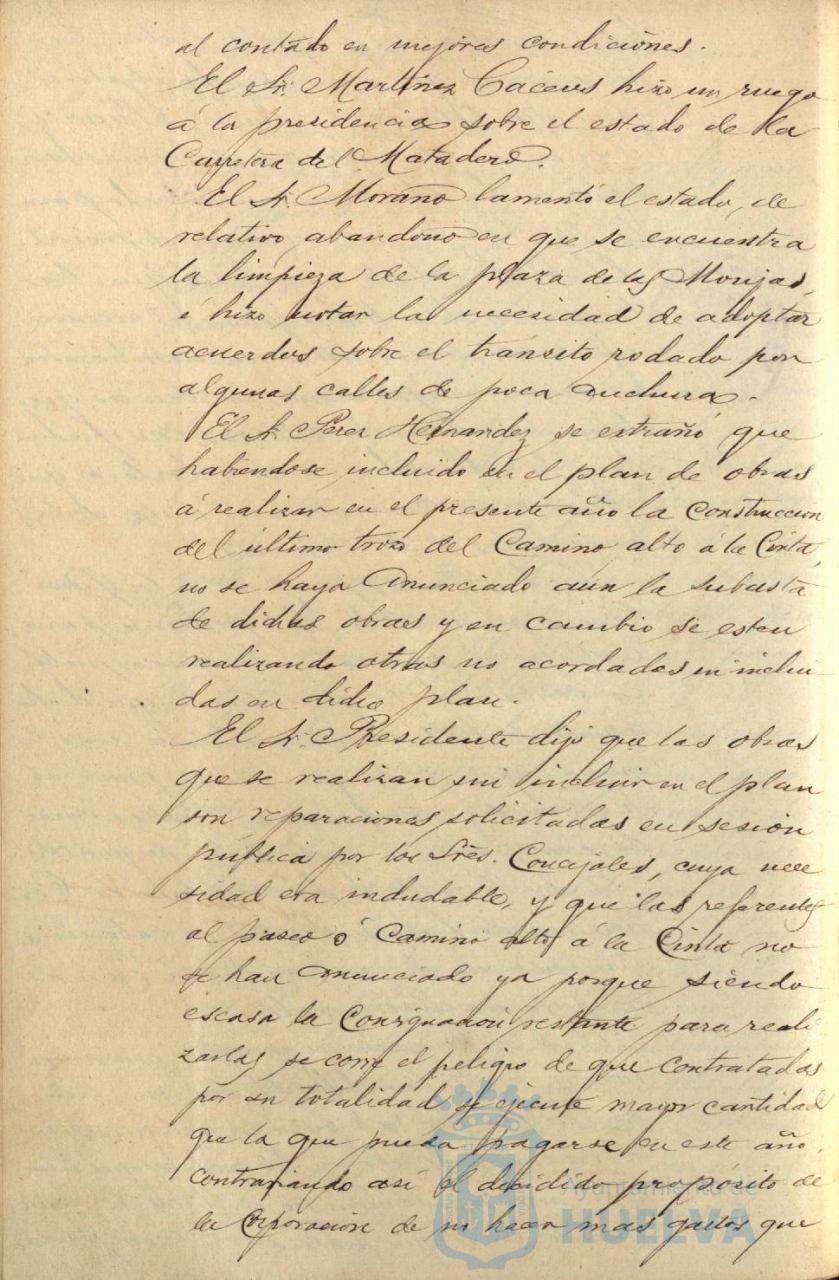 al contado en mejores condiciones.
El Sr. Martinez Cáceres hizo un ruego
á la presidencia sobre el estado de la
Carretera del Matadero.
El Sr. Morano lamentó el estado, de
relativo abandono en que se encuentra
la limpieza de la plaza de las Monjas,
é hizo notar la necesidad de adoptar
acuerdos sobre el transito rodado por
algunas calles de poca anchura.
El Sr. Perez Hernandez se extrañó que
habiendose incluido en el plan de obras
á realizar en el presente año la construccion
del último trozo del Camino alto á la Cinta,
no se haya anunciado aún la subasta
de dichas obras y en cambio se esten
realizando otras no acordadas ni inclui-
das en dicho plan.
El Sr. Presidente dijo que las obras
que se realizan sin incluir en el plan
son reparaciones solicitadas en sesión
pública por los Sres. Concejales, cuya nece
sidad era indudable, y que las referentes
al paseo ó Camino alto á la Cinta no
se han anunciado ya porque siendo
escasa la Consignación restante para reali
zarlas se corre el peligro de que contratadas
por su totalidad se ejecute mayor cantidad
que la que pueda pagarse en este año,
contrariando así el decidido propósito de
la Corporación de no hacer mas gastos que
Ayuntamiento de
HUELVA